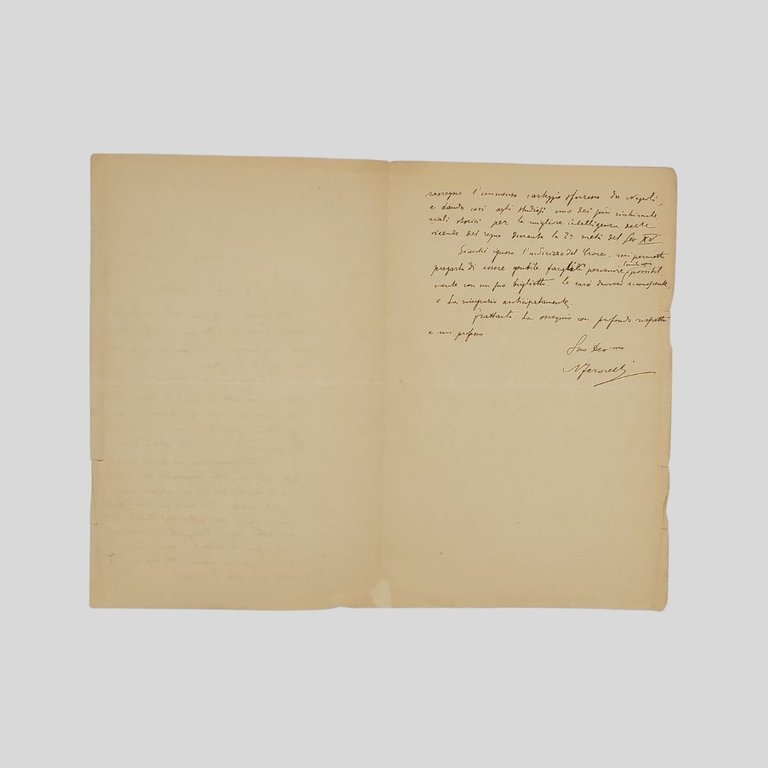 rassegna l'immenso carteggio sforzesco da Napoli,
e dando così agli studiosi uno dei più
storici per la migliore intelligenza delle
vicende del regno durante la 2ª metà del Sec XV.
Giacchè ignoro l'indirizzo del Croce, mi permetto
pregarla di essere gentile fargliela pervenire,
mente con un suo biglietto. Le sarò davvero riconoscente,
e La ringrazio anticipatamente.
Frattanto La ossequio con profondo rispetto
e mi professo
Suo Dev mo
N Ferorelli